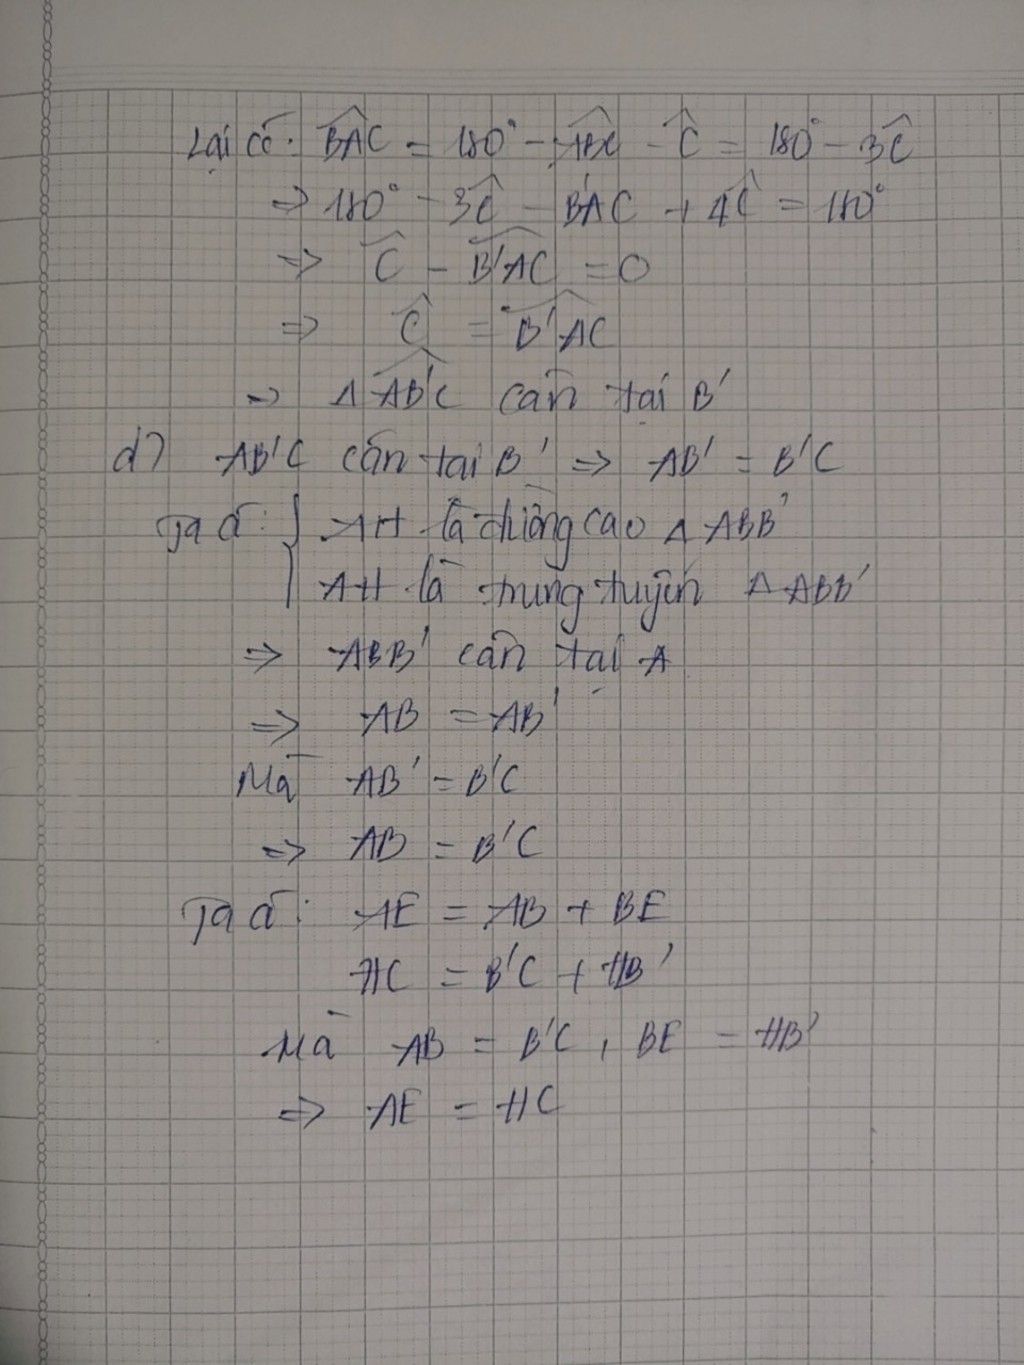 Lại có: BAC = 180° - ABC - C = 180° - 3C
=> 180° - 3C - B'AC + 4C = 180°
=> C - B'AC = 0
=> C = B'AC
=> Δ AB'C cân tại B'
d) AB'C cân tại B' => AB' = B'C
Ta có: { AH là đường cao Δ ABB'
AH là trung tuyến Δ ABB'
=> ABB' cân tại A
=> AB = AB'
Mà AB' = B'C
=> AB = B'C
Ta có: AE = AB + BE
HC = B'C + HB'
Mà AB = B'C, BE = HB'
=> AE = HC